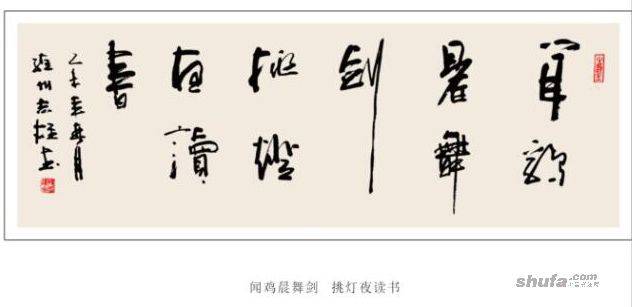 聞鷄
晨舞
劍
挑燈
夜讀
書
乙未月
州志書
闻鸡晨舞剑 挑灯夜读书
shufa.com